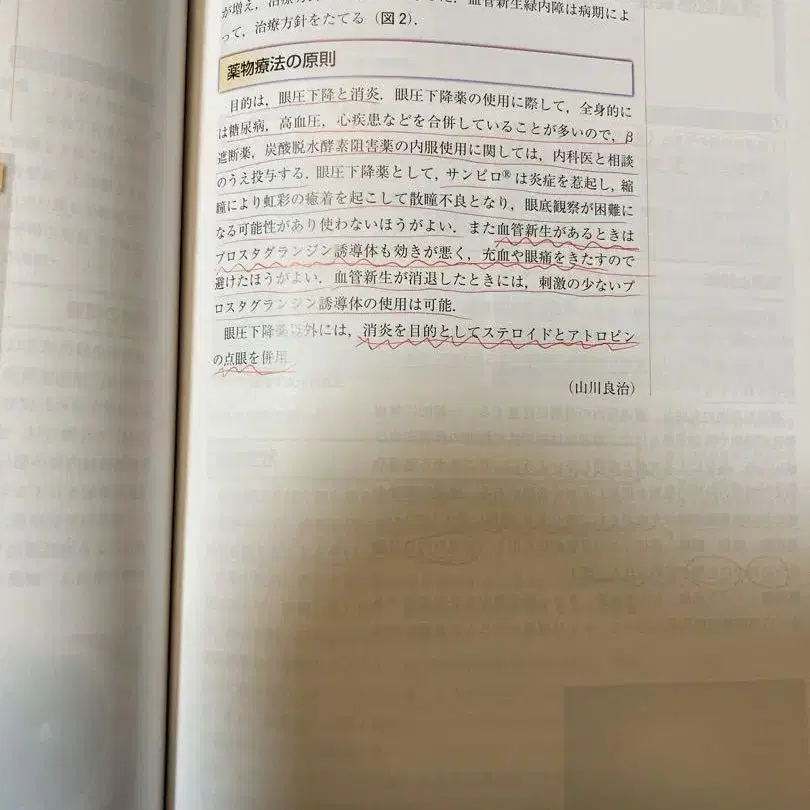 が増え，治療方
血管新生緑内障は病期によ
って，治療方針をたてる（図2）．
薬物療法の原則
目的は，眼圧下降と消炎．眼圧下降薬の使用に際して，全身的に
は糖尿病，高血圧，心疾患などを合併していることが多いので，β
遮断薬，炭酸脱水酵素阻害薬の内服使用に関しては，内科医と相談
のうえ投与する．眼圧下降薬として，サンピロ®は炎症を惹起し，縮
瞳により虹彩の癒着を起こして散瞳不良となり，眼底観察が困難に
なる可能性があり使わないほうがよい．また血管新生があるときは
プロスタグランジン誘導体も効きが悪く，充血や眼痛をきたすので
避けたほうがよい．血管新生が消退したときには，刺激の少ないプ
ロスタグランジン誘導体の使用は可能．
眼圧下降薬以外には，消炎を目的としてステロイドとアトロピン
の点眼を併用．
（山川良治）